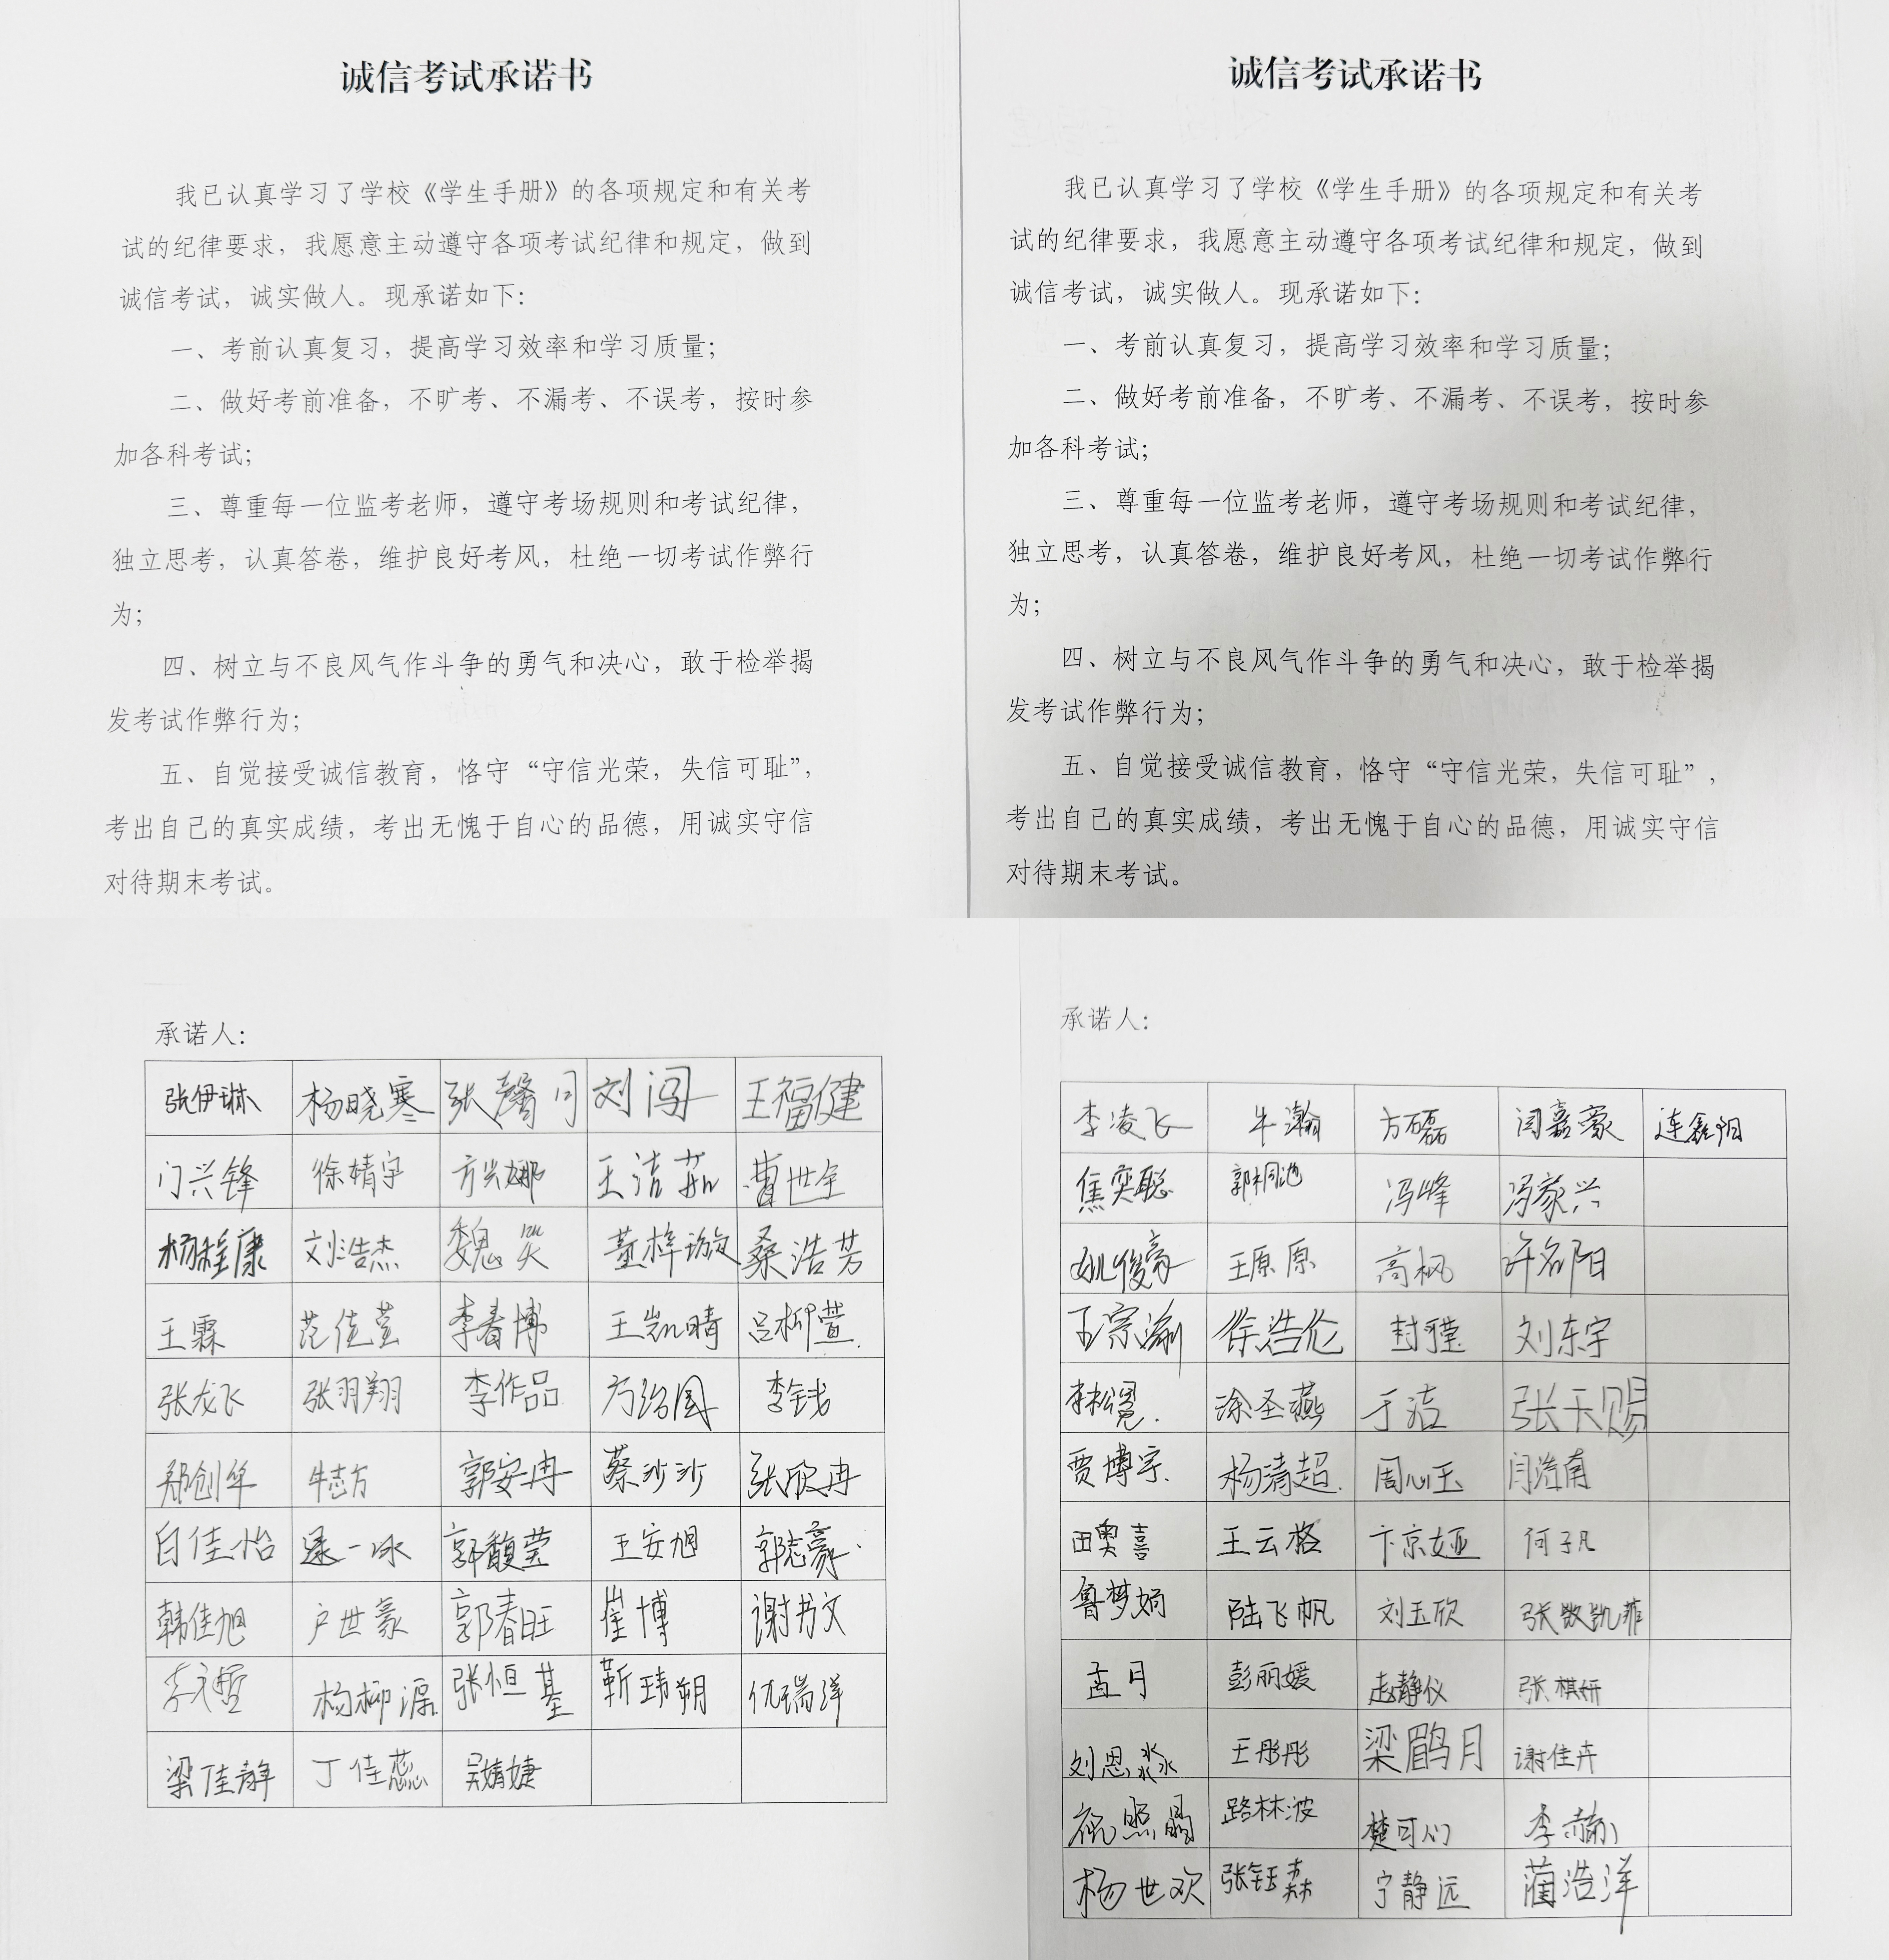 诚信考试承诺书
我已认真学习了学校《学生手册》的各项规定和有关考
试的纪律要求，我愿意主动遵守各项考试纪律和规定，做到
诚信考试，诚实做人。现承诺如下：
一、考前认真复习，提高学习效率和学习质量；
二、做好考前准备，不旷考、不漏考、不误考，按时参
加各科考试；
三、尊重每一位监考老师，遵守考场规则和考试纪律，
独立思考，认真答卷，维护良好考风，杜绝一切考试作弊行
为；
四、树立与不良风气作斗争的勇气和决心，敢于检举揭
发考试作弊行为；
五、自觉接受诚信教育，恪守“守信光荣，失信可耻”，
考出自己的真实成绩，考出无愧于自心的品德，用诚实守信
对待期末考试。
诚信考试承诺书
我已认真学习了学校《学生手册》的各项规定和有关考
试的纪律要求，我愿意主动遵守各项考试纪律和规定，做到
诚信考试，诚实做人。现承诺如下：
一、考前认真复习，提高学习效率和学习质量；
二、做好考前准备，不旷考、不漏考、不误考，按时参
加各科考试；
三、尊重每一位监考老师，遵守考场规则和考试纪律，
独立思考，认真答卷，维护良好考风，杜绝一切考试作弊行
为；
四、树立与不良风气作斗争的勇气和决心，敢于检举揭
发考试作弊行为；
五、自觉接受诚信教育，恪守“守信光荣，失信可耻”，
考出自己的真实成绩，考出无愧于自心的品德，用诚实守信
对待期末考试。
承诺人：
张伊琳 杨晓寒 张馨月 刘闯 王福健
门兴锋 徐婧宇 方兴娜 王洁茹 曹世全
杨程康 刘浩杰 魏笑 董梓璇 桑浩芳
王霖 范佳萱 李春博 王凯晴 吕柳萱
张龙飞 张羽翔 李作品 李钱
郑创华 牛志方 郭安冉 蔡沙沙 张欣冉
白佳怡 逯一冰 郭馥莹 王安旭 郭志豪
韩佳旭 户世豪 郭春旺 崔博 谢书文
杨柳潺 张恒基 靳玮朔 仇瑞洋
梁佳静 丁佳蕊 吴婧婕
承诺人：
李凌飞 牛瀚 方磊 闫嘉豪 连鑫阳
焦奕聪 郭桐池 冯峰 冯家兴
姚俊豪 王原原 高枫 许名阳
王宗瀚 徐浩伦 封瑾 刘东宇
涂圣燕 于洁 张天赐
贾博宇 杨清超 周心玉
田奥喜 王云格 卞京娅 何子凡
鲁梦娟 陆飞帆 刘玉欣
孟月 彭丽媛 赵静仪 张棋妍
刘恩淼 王彤彤 梁鹛月 谢佳卉
祝照晶 路林波 楚可人 李赫
杨世欢 张钰森 宁静远 蔺浩洋